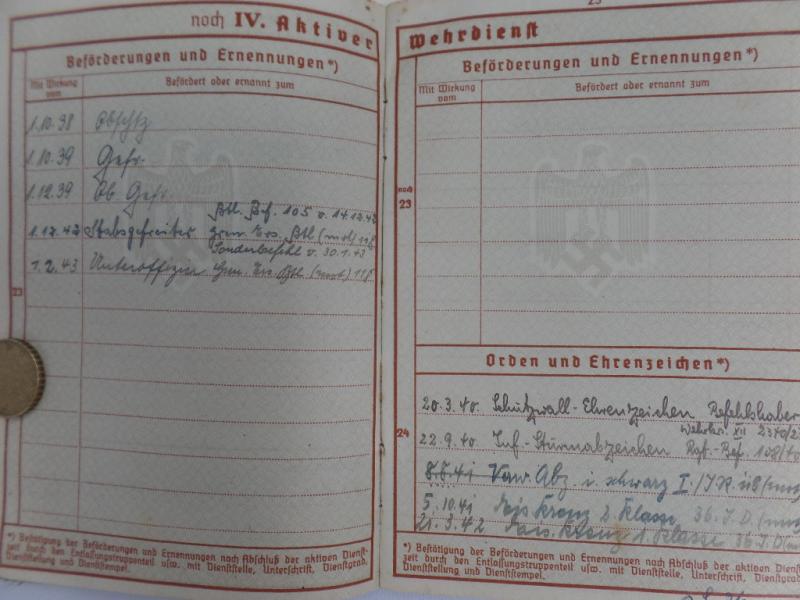 noch IV. Aktiver
Beförderungen und Ernennungen*)
Mit Wirkung vom
Befördert oder ernannt zum
1.10.38 Obschtz
1.10.39 Gefr.
1.12.39 Ob. Gefr.
Btl. Bef. 105 v. 14.12.42
1.12.42 Stabsgefreiter Gren. Ers. Btl (mot) 118
Sonderbefehl v. 30.1.43
1.2.43 Unteroffizier Gren. Ers. Btl (mot) 118
23
*) Bestätigung der Beförderungen und Ernennungen nach Abschluß der aktiven Dienst-
zeit durch den Entlassungstruppenteil usw. mit Dienststelle, Unterschrift, Dienstgrad,
Dienststellung und Dienststempel.
Wehrdienst
Beförderungen und Ernennungen*)
Mit Wirkung vom
Befördert oder ernannt zum
noch
23
Orden und Ehrenzeichen*)
20.3.40 Schutzwall-Ehrenzeichen Befehlshaber
Wehrkr. XII
24
22.9.40 Inf-Sturmabzeichen Rgt.-Bef. 108/40
8.8.41 Verw. Abz. i. schwarz I./I.R. 118 (mot
5.10.41 Eis. Kreuz 2. Klasse 36. I.D. (mot
21.3.42 Eis. Kreuz 1. Klasse 36. I.D (m
*) Bestätigung der Beförderungen und Ernennungen nach Abschluß der aktiven Dienst-
zeit durch den Entlassungstruppenteil usw. mit Dienststelle, Unterschrift, Dienstgrad,
Dienststellung und Dienststempel.